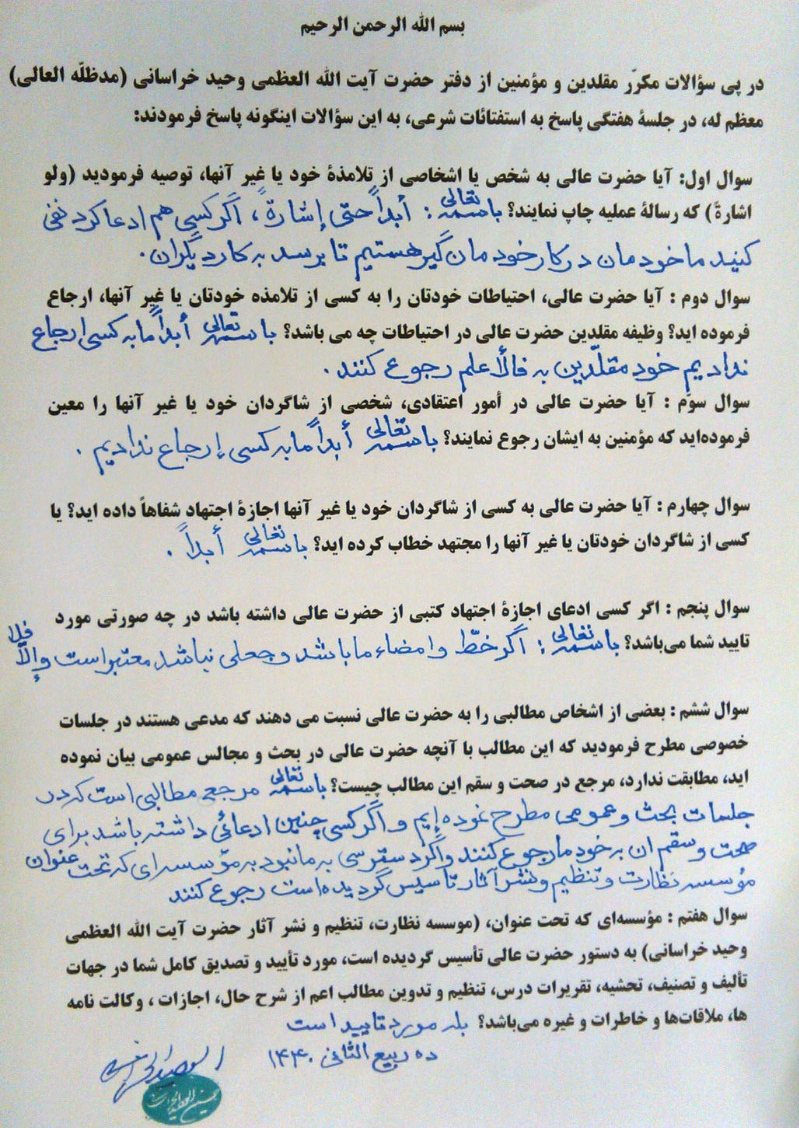 بسم الله الرحمن الرحیم
در پی سؤالات مکرّر مقلدین و مؤمنین از دفتر حضرت آیت الله العظمی وحید خراسانی (مدظلّه العالی)
معظم له، در جلسهٔ هفتگی پاسخ به استفتائات شرعی، به این سؤالات اینگونه پاسخ فرمودند:
سوال اول: آیا حضرت عالی به شخص یا اشخاصی از تلامذهٔ خود یا غیر آنها، توصیه فرمودید (ولو
اشارةً) که رسالهٔ عملیه چاپ نمایند؟ باسمه تعالی : أبداً حتی إشارةً، اگر کسی هم ادعا کرد نفی
کنید ما خودمان در کار خودمان گیر هستیم تا برسد به کار دیگران.
سوال دوم : آیا حضرت عالی، احتیاطات خودتان را به کسی از تلامذه خودتان یا غیر آنها، ارجاع
فرموده اید؟ وظیفه مقلدین حضرت عالی در احتیاطات چه می باشد؟ باسمه تعالی أبداً ما به کسی ارجاع
ندادیم خود مقلّدین به فالأعلم رجوع کنند.
سوال سوّم : آیا حضرت عالی در أمور اعتقادی، شخصی از شاگردان خود یا غیر آنها را معین
فرموده‌اید که مؤمنین به ایشان رجوع نمایند؟ باسمه تعالی أبداً ما به کسی إرجاع ندادیم.
سوال چهارم : آیا حضرت عالی به کسی از شاگردان خود یا غیر آنها اجازهٔ اجتهاد شفاهاً داده اید؟ یا
کسی از شاگردان خودتان یا غیر آنها را مجتهد خطاب کرده اید؟ باسمه تعالی أبداً .
سوال پنجم : اگر کسی ادعای اجازهٔ اجتهاد کتبی از حضرت عالی داشته باشد در چه صورتی مورد
تایید شما می‌باشد؟ باسمه تعالی : اگر خطّ و امضاء ما باشد و جعلی نباشد معتبر است وإلّا فلا
سوال ششم : بعضی از اشخاص مطالبی را به حضرت عالی نسبت می دهند که مدعی هستند در جلسات
خصوصی مطرح فرمودید که این مطالب با آنچه حضرت عالی در بحث و مجالس عمومی بیان نموده
اید، مطابقت ندارد، مرجع در صحت و سقم این مطالب چیست؟ باسمه تعالی مرجع مطالبی است که در
جلسات بحث و عمومی مطرح نموده إیم و اگر کسی چنین ادعائی داشته باشد برای
صحت و سقم ان به خود ما رجوع کنند و اگر دسترسی به ما نبود به مؤسسه ای که تحت عنوان
مؤسسه نظارت و تنظیم و نشر آثار تاسیس گردیده است رجوع کنند
سوال هفتم : مؤسسه‌ای که تحت عنوان، (موسسه نظارت، تنظیم و نشر آثار حضرت آیت الله العظمی
وحید خراسانی) به دستور حضرت عالی تأسیس گردیده است، مورد تأیید و تصدیق کامل شما در جهات
تألیف و تصنیف، تحشیه، تقریرات درس، تنظیم و تدوین مطالب اعم از شرح حال، اجازات ، وکالت نامه
ها، ملاقات‌ها و خاطرات و غیره می‌باشد؟ بله مورد تایید است
ده ربیع الثانی ۱۴۴۰